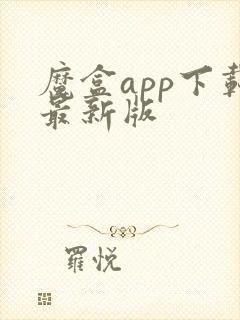 魔盒app下載
最新版
羅悅